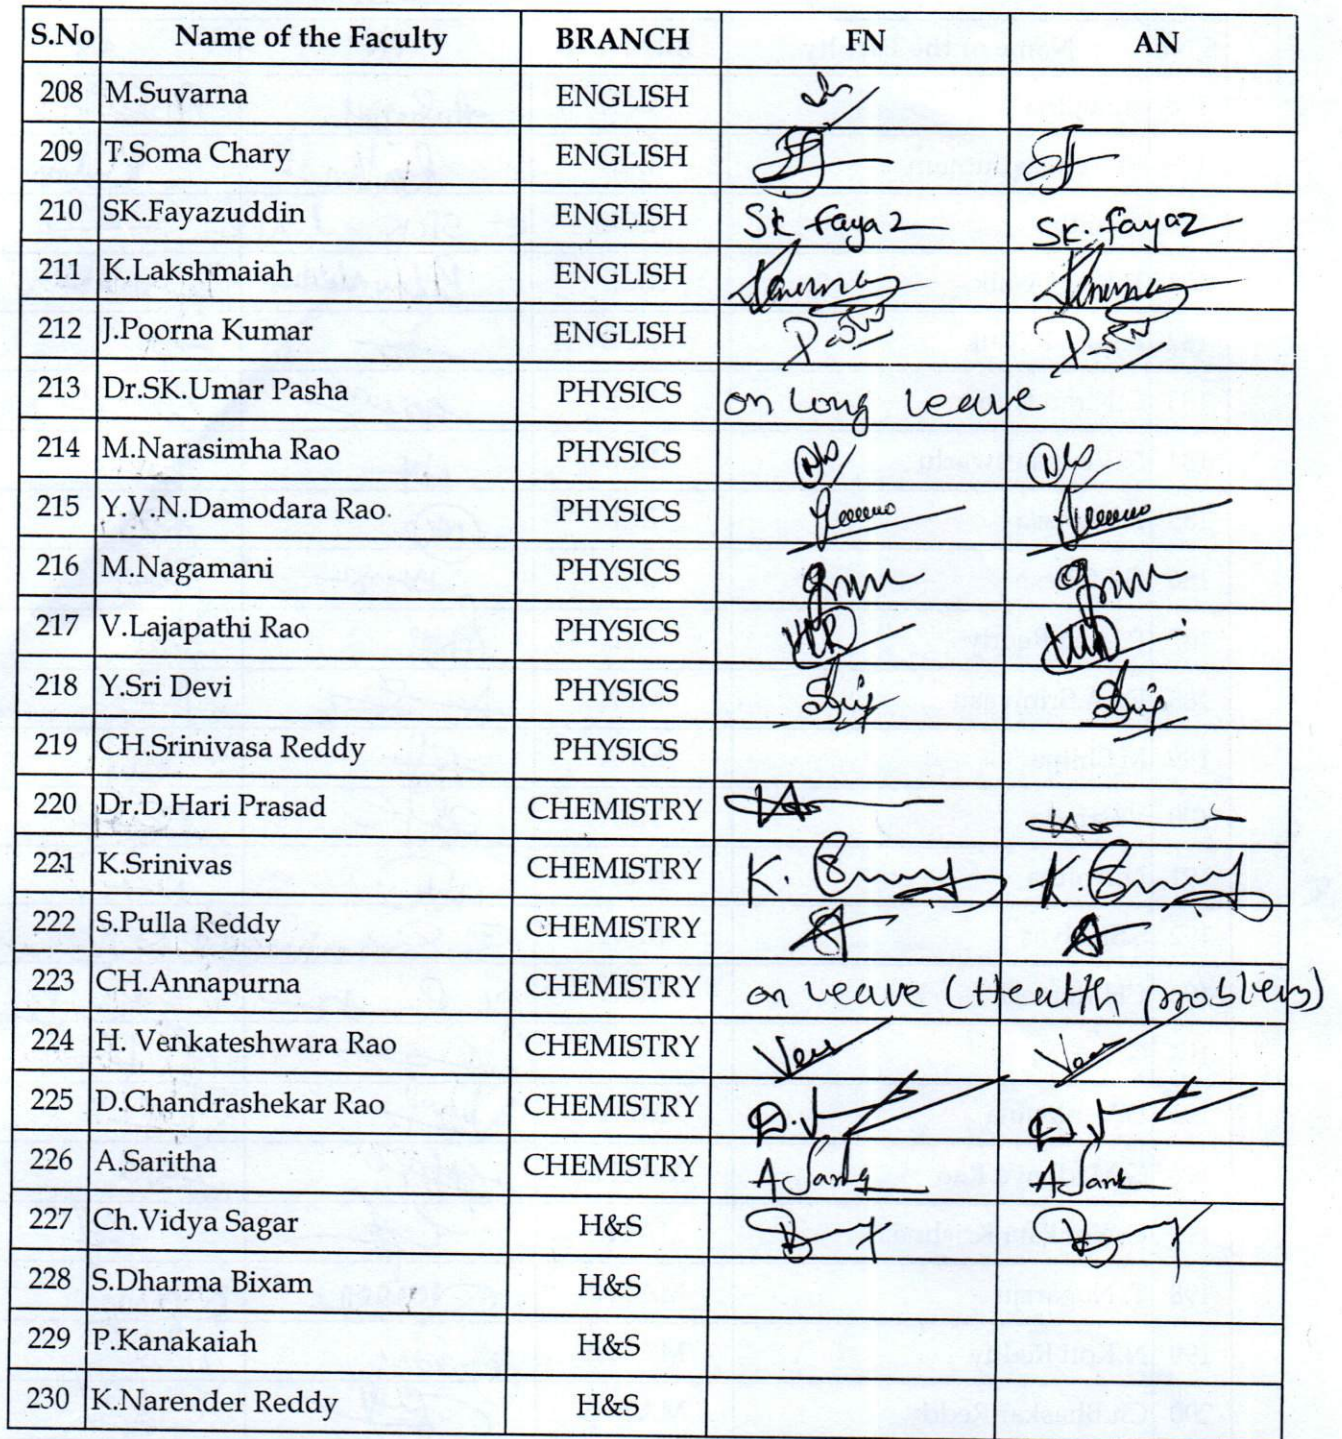 S.No Name of the Faculty BRANCH FN AN
208 M.Suvarna ENGLISH
209 T.Soma Chary ENGLISH
210 SK.Fayazuddin ENGLISH Sk fayaz Sk.fayaz
211 K.Lakshmaiah ENGLISH
212 J.Poorna Kumar ENGLISH
213 Dr.SK.Umar Pasha PHYSICS on Long leave
214 M.Narasimha Rao PHYSICS
215 Y.V.N.Damodara Rao PHYSICS
216 M.Nagamani PHYSICS
217 V.Lajapathi Rao PHYSICS
218 Y.Sri Devi PHYSICS
219 CH.Srinivasa Reddy PHYSICS
220 Dr.D.Hari Prasad CHEMISTRY
221 K.Srinivas CHEMISTRY K. K.
222 S.Pulla Reddy CHEMISTRY
223 CH.Annapurna CHEMISTRY on leave (Health problem)
224 H. Venkateshwara Rao CHEMISTRY
225 D.Chandrashekar Rao CHEMISTRY
226 A.Saritha CHEMISTRY
227 Ch.Vidya Sagar H&S
228 S.Dharma Bixam H&S
229 P.Kanakaiah H&S
230 K.Narender Reddy H&S